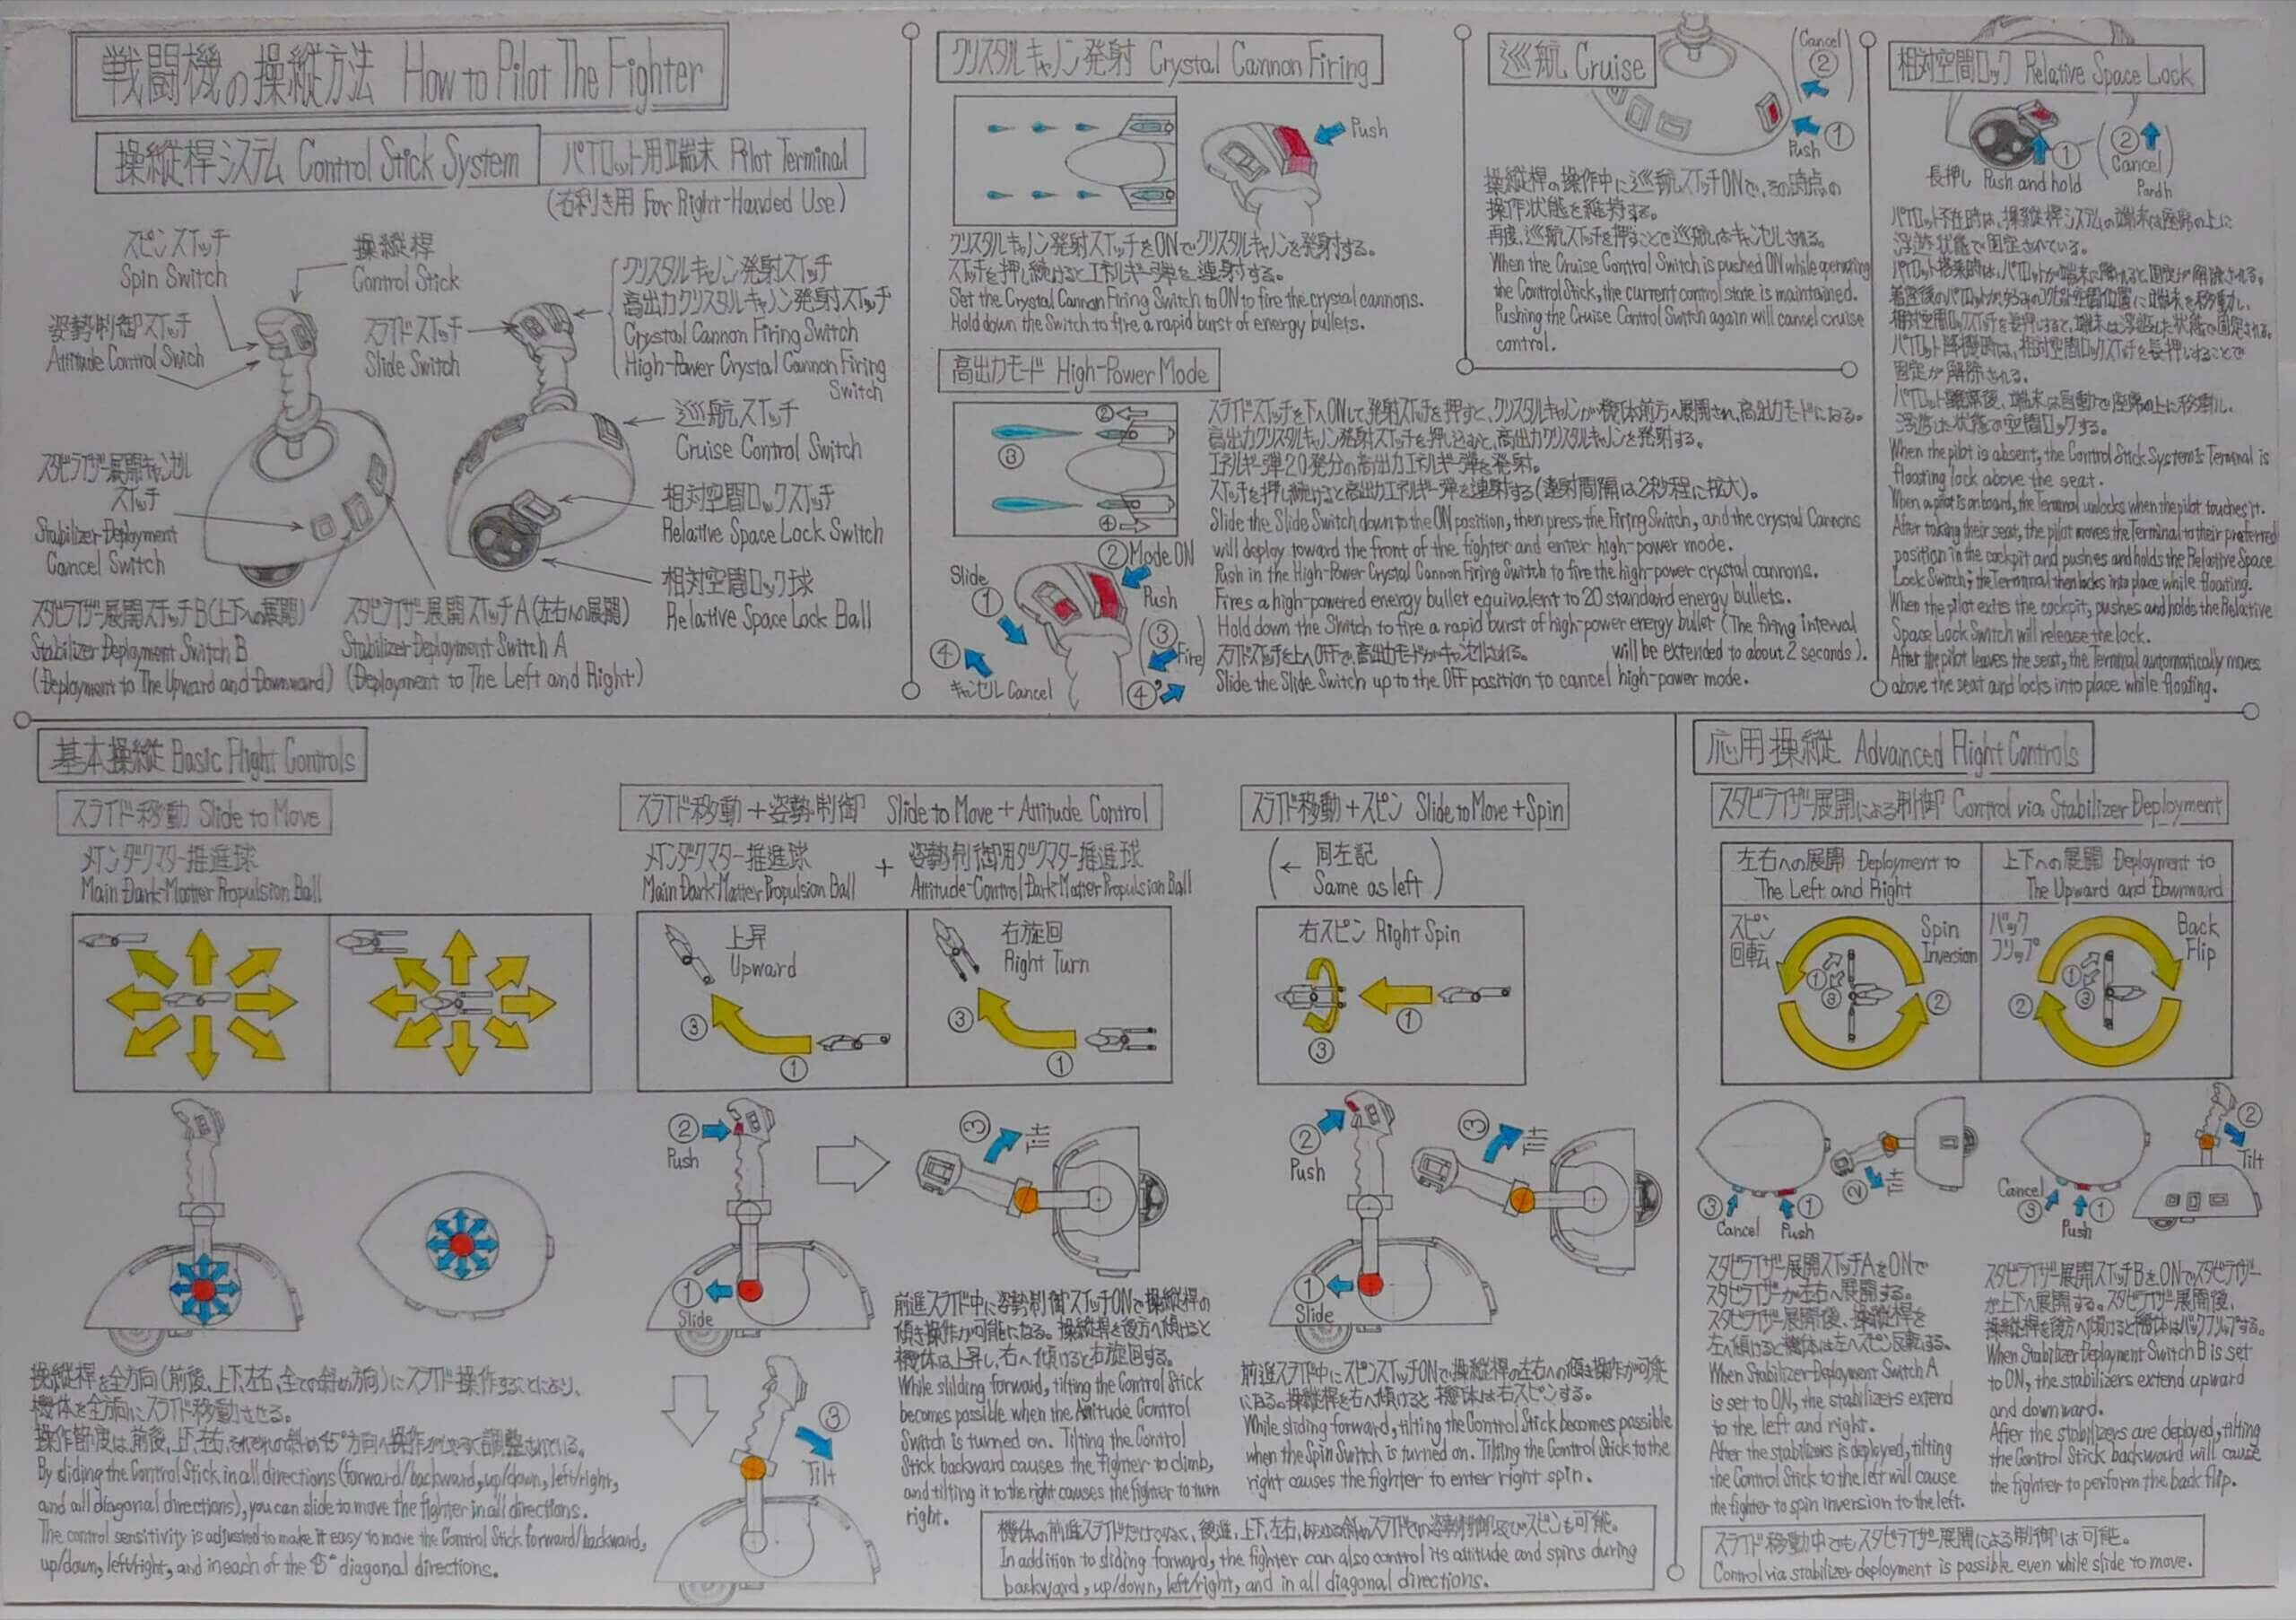 戦闘機の操縦方法 How to Pilot The Fighter
操縦桿システム Control Stick System
パイロット用端末 Pilot Terminal
(右利き用 For Right-Handed Use)
スピンスイッチ
Spin Switch
操縦桿
Control Stick
姿勢制御スイッチ
Attitude Control Swich
スライドスイッチ
Slide Switch
クリスタルキャノン発射スイッチ
高出力クリスタルキャノン発射スイッチ
Crystal Cannon Firing Switch
High-Power Crystal Cannon Firing
Switch
巡航スイッチ
Cruise Control Switch
スタビライザー展開キャンセル
スイッチ
Stabilizer Deployment
Cancel Switch
相対空間ロックスイッチ
Relative Space Lock Switch
相対空間ロック球
Relative Space Lock Ball
スタビライザー展開スイッチB(上下への展開)
Stabilizer Deployment Switch B
(Deployment to The Upward and Downward)
スタビライザー展開スイッチA(左右への展開)
Stabilizer Deployment Switch A
(Deployment to The Left and Right)
クリスタルキャノン発射 Crystal Cannon Firing
Push
クリスタルキャノン発射スイッチをONでクリスタルキャノンを発射する。
スイッチを押し続けるとエネルギー弾を連射する。
Set the Crystal Cannon Firing Switch to ON to fire the crystal cannons.
Hold down the Switch to fire a rapid burst of energy bullets.
高出力モード High-Power Mode
②
③
④
②Mode ON
Slide
①
Push
③
Fire
④
キャンセル Cancel
④'
スライドスイッチを下へONして発射スイッチを押すと、クリスタルキャノンが機体前方へ展開され、高出力モードになる。
高出力クリスタルキャノン発射スイッチを押し込むと、高出力クリスタルキャノンを発射する。
エネルギー弾20発分の高出力エネルギー弾を発射。
スイッチを押し続けると高出力エネルギー弾を連射する(連射間隔は2秒程に拡大)。
Slide the Slide Switch down to the ON position, then press the Firing Switch, and the crystal Cannons
will deploy toward the front of the fighter and enter high-power mode.
Push in the High-Power Crystal Cannon Firing Switch to fire the high-power crystal cannons.
Fires a high-powered energy bullet equivalent to 20 standard energy bullets.
Hold down the Switch to fire a rapid burst of high-power energy bullet (The firing interval
will be extended to about 2 seconds).
スライドスイッチを上へOFFで、高出力モードがキャンセルされる。
Slide the Slide Switch up to the OFF position to cancel high-power mode.
巡航 Cruise
(Cancel)
②
①
Push
操縦桿の操作中に巡航スイッチONで、その時点の
操作状態を維持する。
再度、巡航スイッチを押すことで巡航はキャンセルされる。
When the Cruise Control Switch is pushed ON while operating
the Control Stick, the current control state is maintained.
Pushing the Cruise Control Switch again will cancel cruise
control.
相対空間ロック Relative Space Lock
①
②
Cancel
長押し Push and hold
Pandh
パイロット不在時は、操縦桿システムの端末は座席の上に
浮遊状態で固定されている。
パイロット搭乗時は、パイロットが端末に触れると固定が解除される。
着座後のパイロットが好みのコクピット空間位置に端末を移動し、
相対空間ロックスイッチを長押しすると、端末は浮遊した状態で固定される。
パイロット降機時は、相対空間ロックスイッチを長押しすることで
固定が解除される。
パイロット離席後、端末は自動で座席の上に移動し、
浮遊した状態で空間ロックする。
When the pilot is absent, the Control Stick System's Terminal is
floating lock above the seat.
When a pilot is on board, the Terminal unlocks when the pilot touches it.
After taking their seat, the pilot moves the Terminal to their preferred
position in the cockpit and pushes and holds the Relative Space
Lock Switch; the Terminal then locks into place while floating.
When the pilot exits the cockpit, pushes and holds the Relative
Space Lock Switch will release the lock.
After the pilot leaves the seat, the Terminal automatically moves
above the seat and locks into place while floating.
基本操縦 Basic Flight Controls
スライド移動 Slide to Move
メインダークマター推進球
Main Dark-Matter Propulsion Ball
操縦桿を全方向(前後、上下、左右、全ての斜め方向)にスライド操作することにより、
機体を全方向にスライド移動させる。
操作感度は、前後、上下、左右、それぞれの斜め45°方向へ操作がしやすく調整されている。
By sliding the Control Stick in all directions (forward/backward, up/down, left/right,
and all diagonal directions), you can slide to move the fighter in all directions.
The control sensitivity is adjusted to make it easy to move the Control Stick forward/backward,
up/down, left/right, and in each of the 45° diagonal directions.
スライド移動+姿勢制御 Slide to Move + Attitude Control
メインダークマター推進球 + 姿勢制御用ダークマター推進球
Main Dark-Matter Propulsion Ball Attitude-Control Dark-Matter Propulsion Ball
上昇
Upward
③
①
右旋回
Right Turn
③
①
②
Push
③
①
Slide
③
Tilt
前進スライド中に姿勢制御スイッチONで操縦桿の
傾き操作が可能になる。操縦桿を後方へ傾けると
機体は上昇し、右へ傾けると右旋回する。
While sliding forward, tilting the Control Stick
becomes possible when the Attitude Control
Switch is turned on. Tilting the Control
Stick backward causes the fighter to climb,
and tilting it to the right causes the fighter to turn
right.
スライド移動+スピン Slide to Move + Spin
(← 同左記
Same as left)
右スピン Right Spin
①
③
②
Push
③
①
Slide
前進スライド中にスピンスイッチONで、操縦桿の左右への傾き操作が可能
になる。操縦桿を右へ傾けると機体は右スピンする。
While sliding forward, tilting the Control Stick becomes possible
when the Spin Switch is turned on. Tilting the Control Stick to the
right causes the fighter to enter right spin.
機体の前進スライドだけでなく、後進、上下、左右、あらゆる斜めスライドでの姿勢制御及びスピンも可能。
In addition to sliding forward, the fighter can also control its attitude and spins during
backward, up/down, left/right, and in all diagonal directions.
応用操縦 Advanced Flight Controls
スタビライザー展開による制御 Control via Stabilizer Deployment
左右への展開 Deployment to
The Left and Right
上下への展開 Deployment to
The Upward and Downward
スピン
回転
Spin
Inversion
①
③
②
バック
フリップ
Back
Flip
①
③
②
③
Cancel
①
Push
②
Cancel
③
①
Push
②
Tilt
スタビライザー展開スイッチAをONで
スタビライザーが左右へ展開する。
スタビライザー展開後、操縦桿を
左へ傾けると機体は左へスピン反転する。
When Stabilizer Deployment Switch A
is set to ON, the stabilizers extend
to the left and right.
After the stabilizers is deployed, tilting
the Control Stick to the left will cause
the fighter to spin inversion to the left.
スタビライザー展開スイッチBをONでスタビライザー
が上下へ展開する。スタビライザー展開後、
操縦桿を後方へ傾けると機体はバックフリップする。
When Stabilizer Deployment Switch B is set
to ON, the stabilizers extend upward
and downward.
After the stabilizers are deployed, tilting
the Control Stick backward will cause
the fighter to perform the back flip.
スライド移動中でも、スタビライザー展開による制御は可能。
Control via stabilizer deployment is possible even while slide to move.